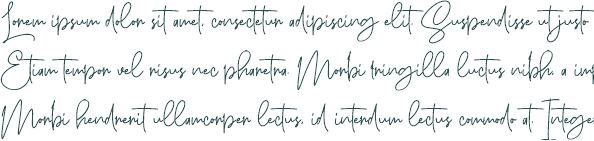 Lorem ipsum dolor sit amet, consectetur adipiscing elit. Suspendisse ut justo
Etiam tempor vel risus nec pharetra. Morbi fringilla luctus nibh, a im
Morbi hendrerit ullamcorper lectus, id interdum lectus commodo at. Intege